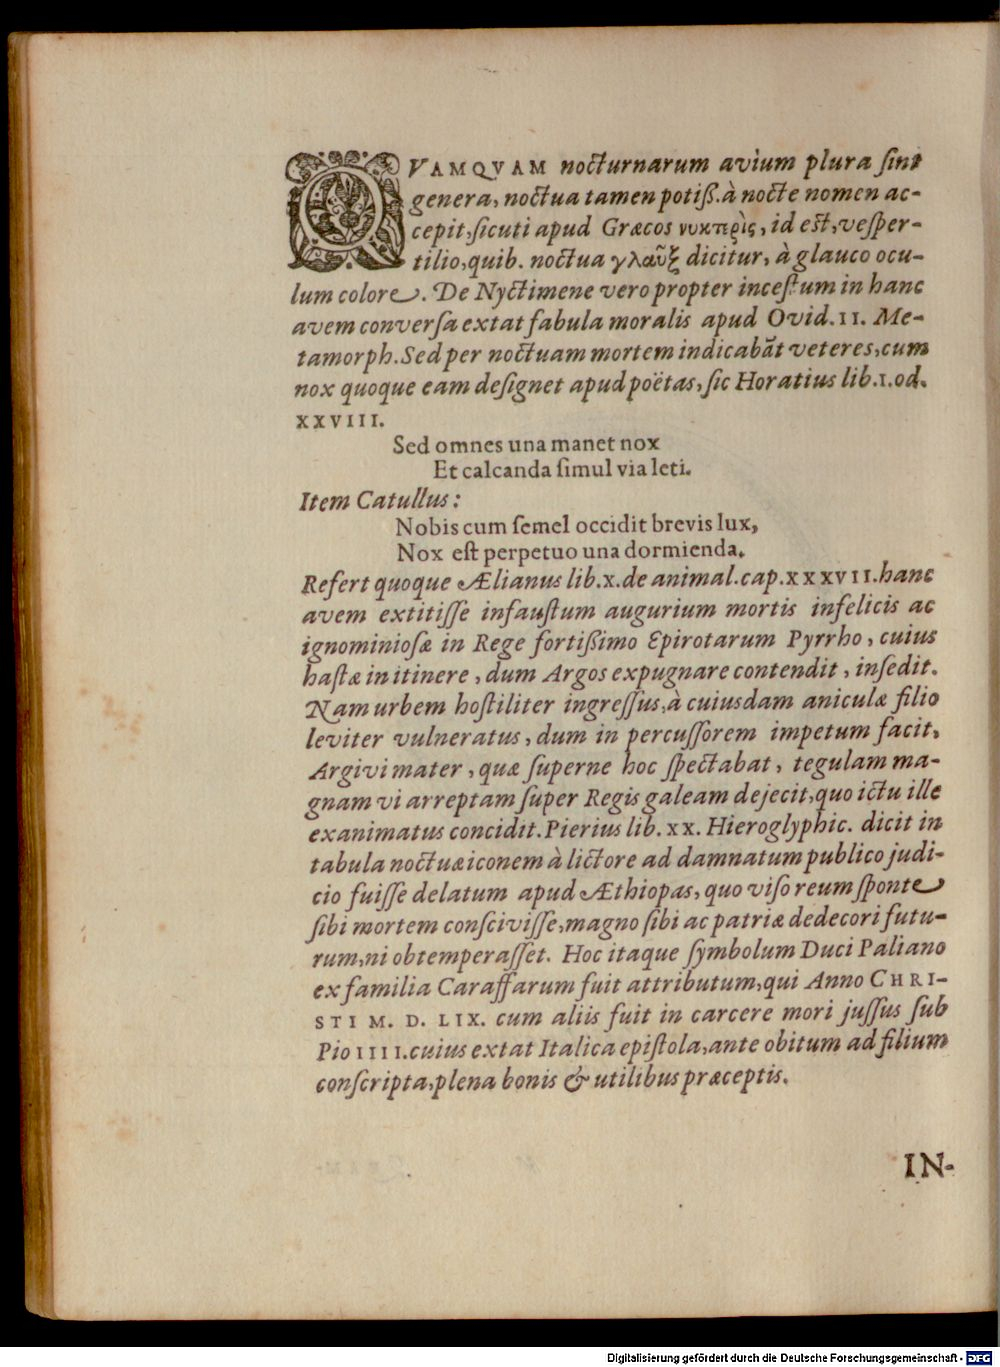 QVAMQVAM nocturnarum avium plura ſint
genera, noctua tamen potiß. à nocte nomen ac-
cepit, ſicuti apud Græcos νυκτερὶς, id eſt, veſper-
tilio, quib. noctua γλαῦξ dicitur, à glauco ocu-
lum colore. De Nyctimene vero propter inceſtum in hanc
avem converſa extat fabula moralis apud Ovid. II. Me-
tamorph. Sed per noctuam mortem indicabãt veteres, cum
nox quoque eam deſignet apud poëtas, ſic Horatius lib. I. od.
XXVIII.
Sed omnes una manet nox
Et calcanda ſimul via leti.
Item Catullus:
Nobis cum ſemel occidit brevis lux,
Nox eſt perpetuo una dormienda.
Refert quoque Ælianus lib. X. de animal. cap. XXXVII. hanc
avem extitiſſe infauſtum augurium mortis infelicis ac
ignominioſæ in Rege fortißimo Epirotarum Pyrrho, cuius
haſtæ in itinere, dum Argos expugnare contendit, inſedit.
Nam urbem hoſtiliter ingreſſus, à cuiusdam aniculæ filio
leviter vulneratus, dum in percuſſorem impetum facit,
Argivi mater, quæ ſuperne hoc ſpectabat, tegulam ma-
gnam vi arreptam ſuper Regis galeam dejecit, quo ictu ille
exanimatus concidit. Pierius lib. XX. Hieroglyphic. dicit in
tabula noctuæ iconem à lictore ad damnatum publico judi-
cio fuiſſe delatum apud Æthiopas, quo viſo reum ſponte
ſibi mortem conſciviſſe, magno ſibi ac patriæ dedecori futu-
rum, ni obtemperaſſet. Hoc itaque ſymbolum Duci Paliano
ex familia Caraffarum fuit attributum, qui Anno CHRI-
STI M. D. LIX. cum aliis fuit in carcere mori juſſus ſub
Pio IIII. cuius extat Italica epiſtola, ante obitum ad filium
conſcripta, plena bonis & utilibus præceptis.
IN-
Digitalisierung gefördert durch die Deutsche Forschungsgemeinschaft - DFG